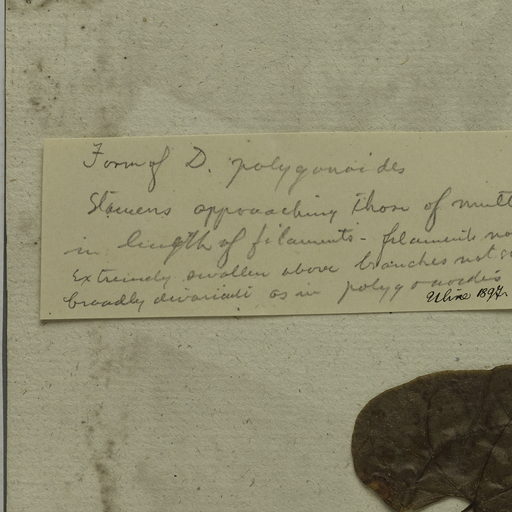 Form of D. polygonoides
Stamens approaching those of mult
in length of filaments - filaments no
Extremely swollen above branches not s
broadly divaricate as in polygonoides
Uline 1897.